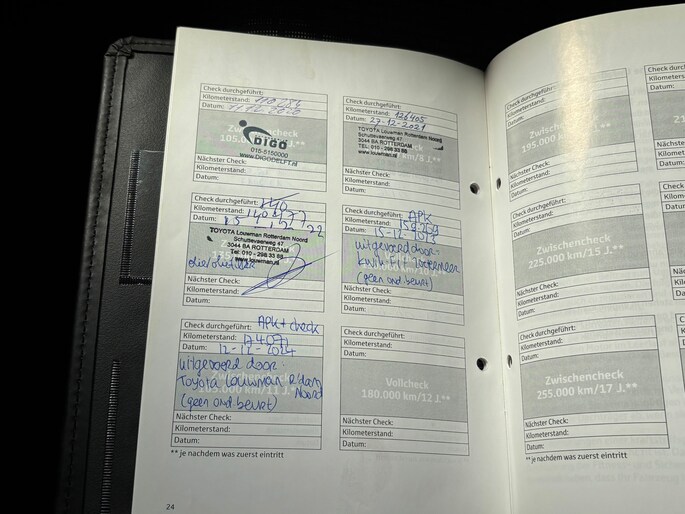 Check durchgeführt:
Kilometerstand: 110784
Datum:
Zwischencheck
105.000
DIGO
015-5150000
www.DIGODELFT.nl
Nächster Check:
Kilometerstand:
Datum:
Check durchgeführt:
Kilometerstand: 126405
Datum: 27-12-2021
TOYOTA Louwman Rotterdam Noord
Schuttevaerweg 47
3044 BA ROTTERDAM
TEL: 010 - 298 33 88
www.louwman.nl
Nächster Check:
Kilometerstand:
Datum:
Check durchgeführt:
Kilometerstand: 140477
Datum:
TOYOTA Louwman Rotterdam Noord
Schuttevaerweg 47
3044 BA ROTTERDAM
Tel: 010 - 298 33 88
www.louwman.nl
Nächster Check:
Kilometerstand:
Datum:
Check durchgeführt: APK
Kilometerstand:
Datum: 15-12-2023
uitgevoerd door
Kwik-Fit
(geen ond. beurt)
Nächster Check:
Kilometerstand:
Datum:
Check durchgeführt: APK + check
Kilometerstand:
Datum: 12-12-2024
uitgevoerd door
Toyota Louwman R'dam
Noord
(geen ond beurt)
Nächster Check:
Kilometerstand:
Datum:
Check durchgeführt:
Kilometerstand:
Datum:
Vollcheck
180.000 km/12 J.**
Nächster Check:
Kilometerstand:
Datum:
** je nachdem was zuerst eintritt
24
Check durchgeführt:
Kilometerstand:
Datum:
Zwischencheck
195.000 km/13 J.**
Nächster Check:
Kilometerstand:
Datum:
Check durchgeführt:
Kilometerstand:
Datum:
Zwischencheck
225.000 km/15 J.**
Nächster Check:
Kilometerstand:
Datum:
Check durchgeführt:
Kilometerstand:
Datum:
Zwischencheck
255.000 km/17 J.**
Nächster Check:
Kilometerstand:
Datum:
** je nachdem was zuerst eintritt